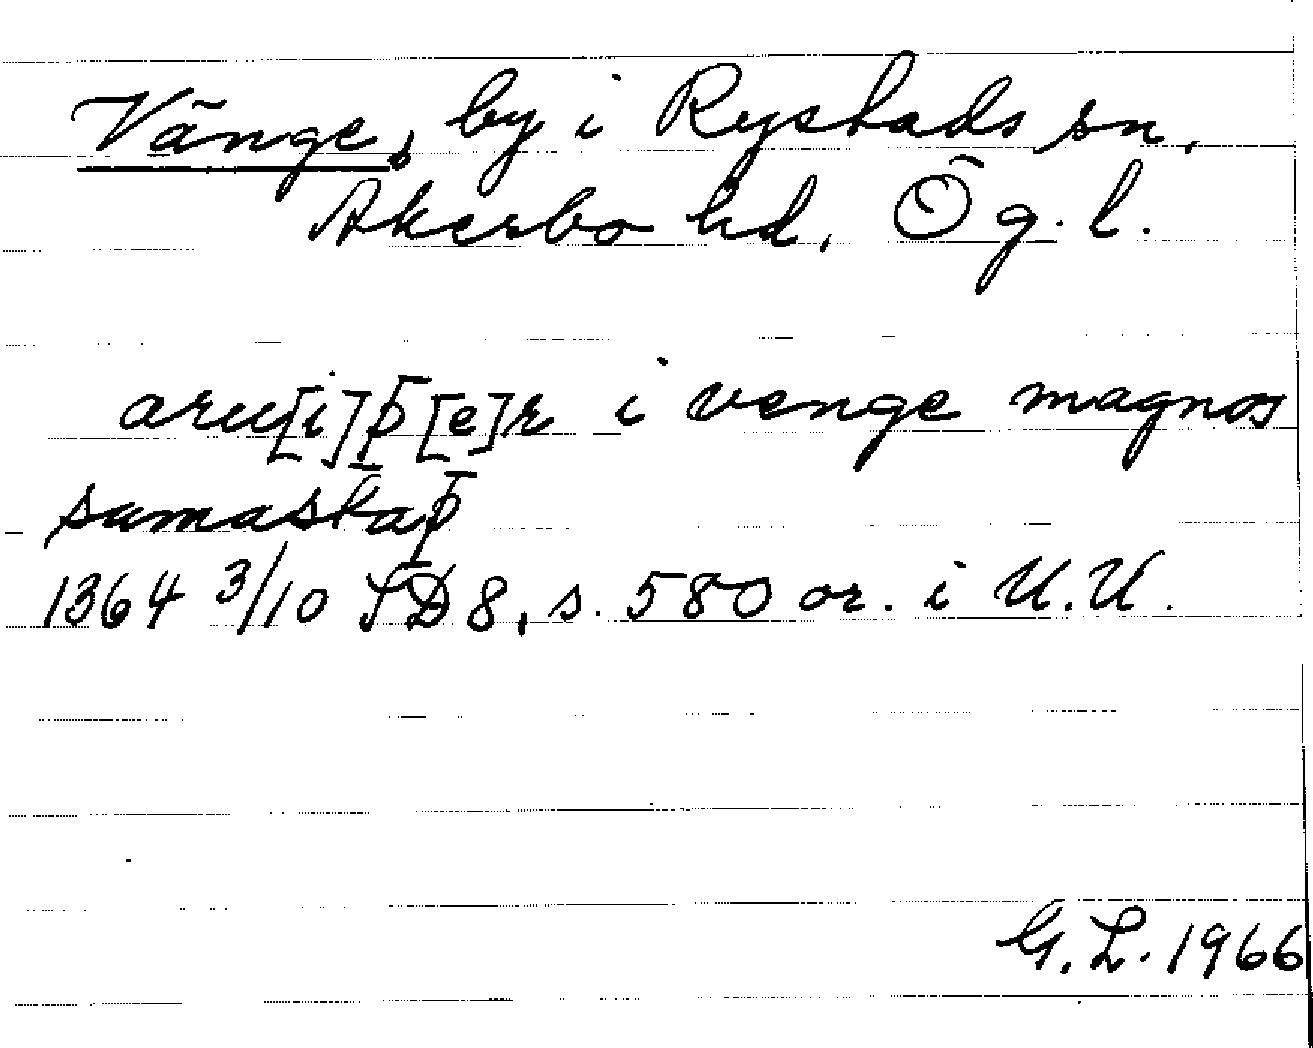 Vänge, by i Rystads sn,
Akerbo hd, Ög. l.
aru[i]þ[e]r i venge magnos
sumaskaþ
1364 3/10 SD 8, s. 580 or. i U.U.
G. L. 1966